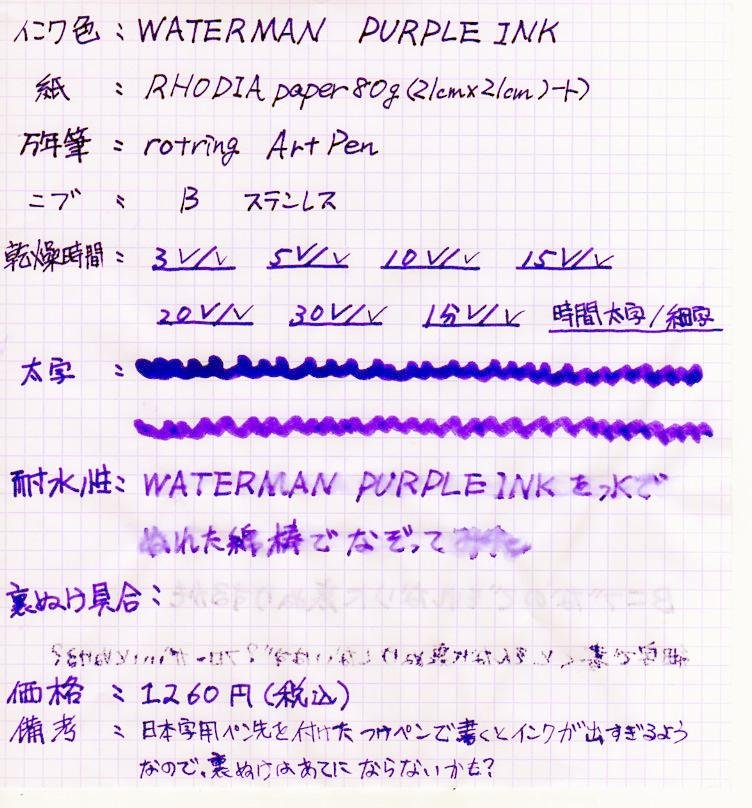 インク色：WATERMAN PURPLE INK
紙：RHODIA paper 80g (21cm×21cm)ノート
万年筆：rotring Art Pen
ニブ：B ステンレス
乾燥時間：3 V/v 5 V/v 10 V/v 15 V/v
20 V/v 30 V/v 1分 V/v 時間太字/細字
太字：
耐水性：WATERMAN PURPLE INKを水で
ぬれた綿棒でなぞって みた。
裏ぬけ具合：
Bニブなのでそれなりに裏ぬけするかも
細字で書くとそんなに裏ぬけしないはず？フローがいいとぬける？
価格：1260円(税込)
備考：日本字用ペン先を付けたつけペンで書くとインクが出すぎるよう
なので、裏ぬけはあてにならないかも？